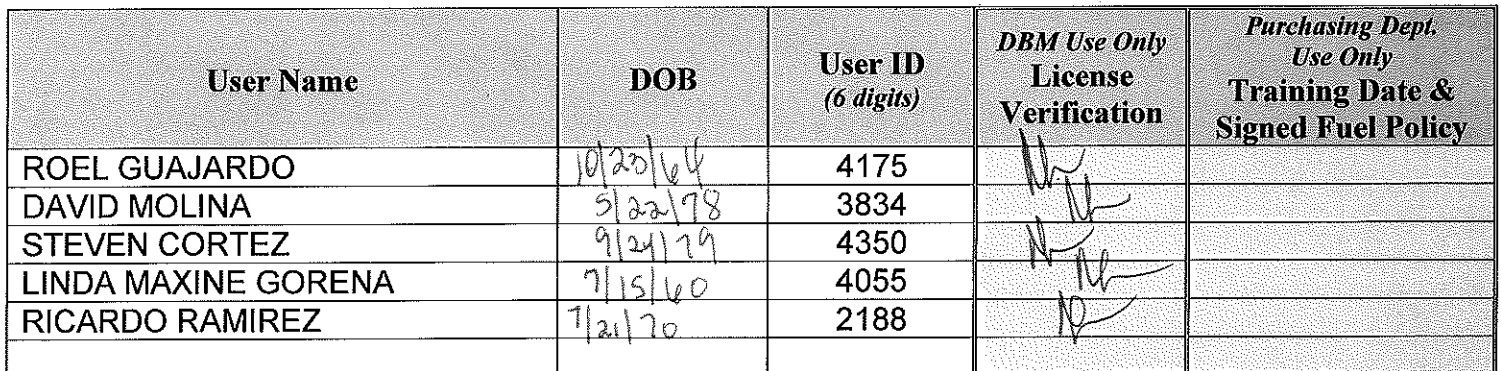 User Name DOB User ID (6 digits) DBM Use Only License Verification Purchasing Dept. Use Only Training Date & Signed Fuel Policy
ROEL GUAJARDO 10/23/64 4175
DAVID MOLINA 5/22/78 3834
STEVEN CORTEZ 9/24/79 4350
LINDA MAXINE GORENA 7/15/60 4055
RICARDO RAMIREZ 7/21/70 2188